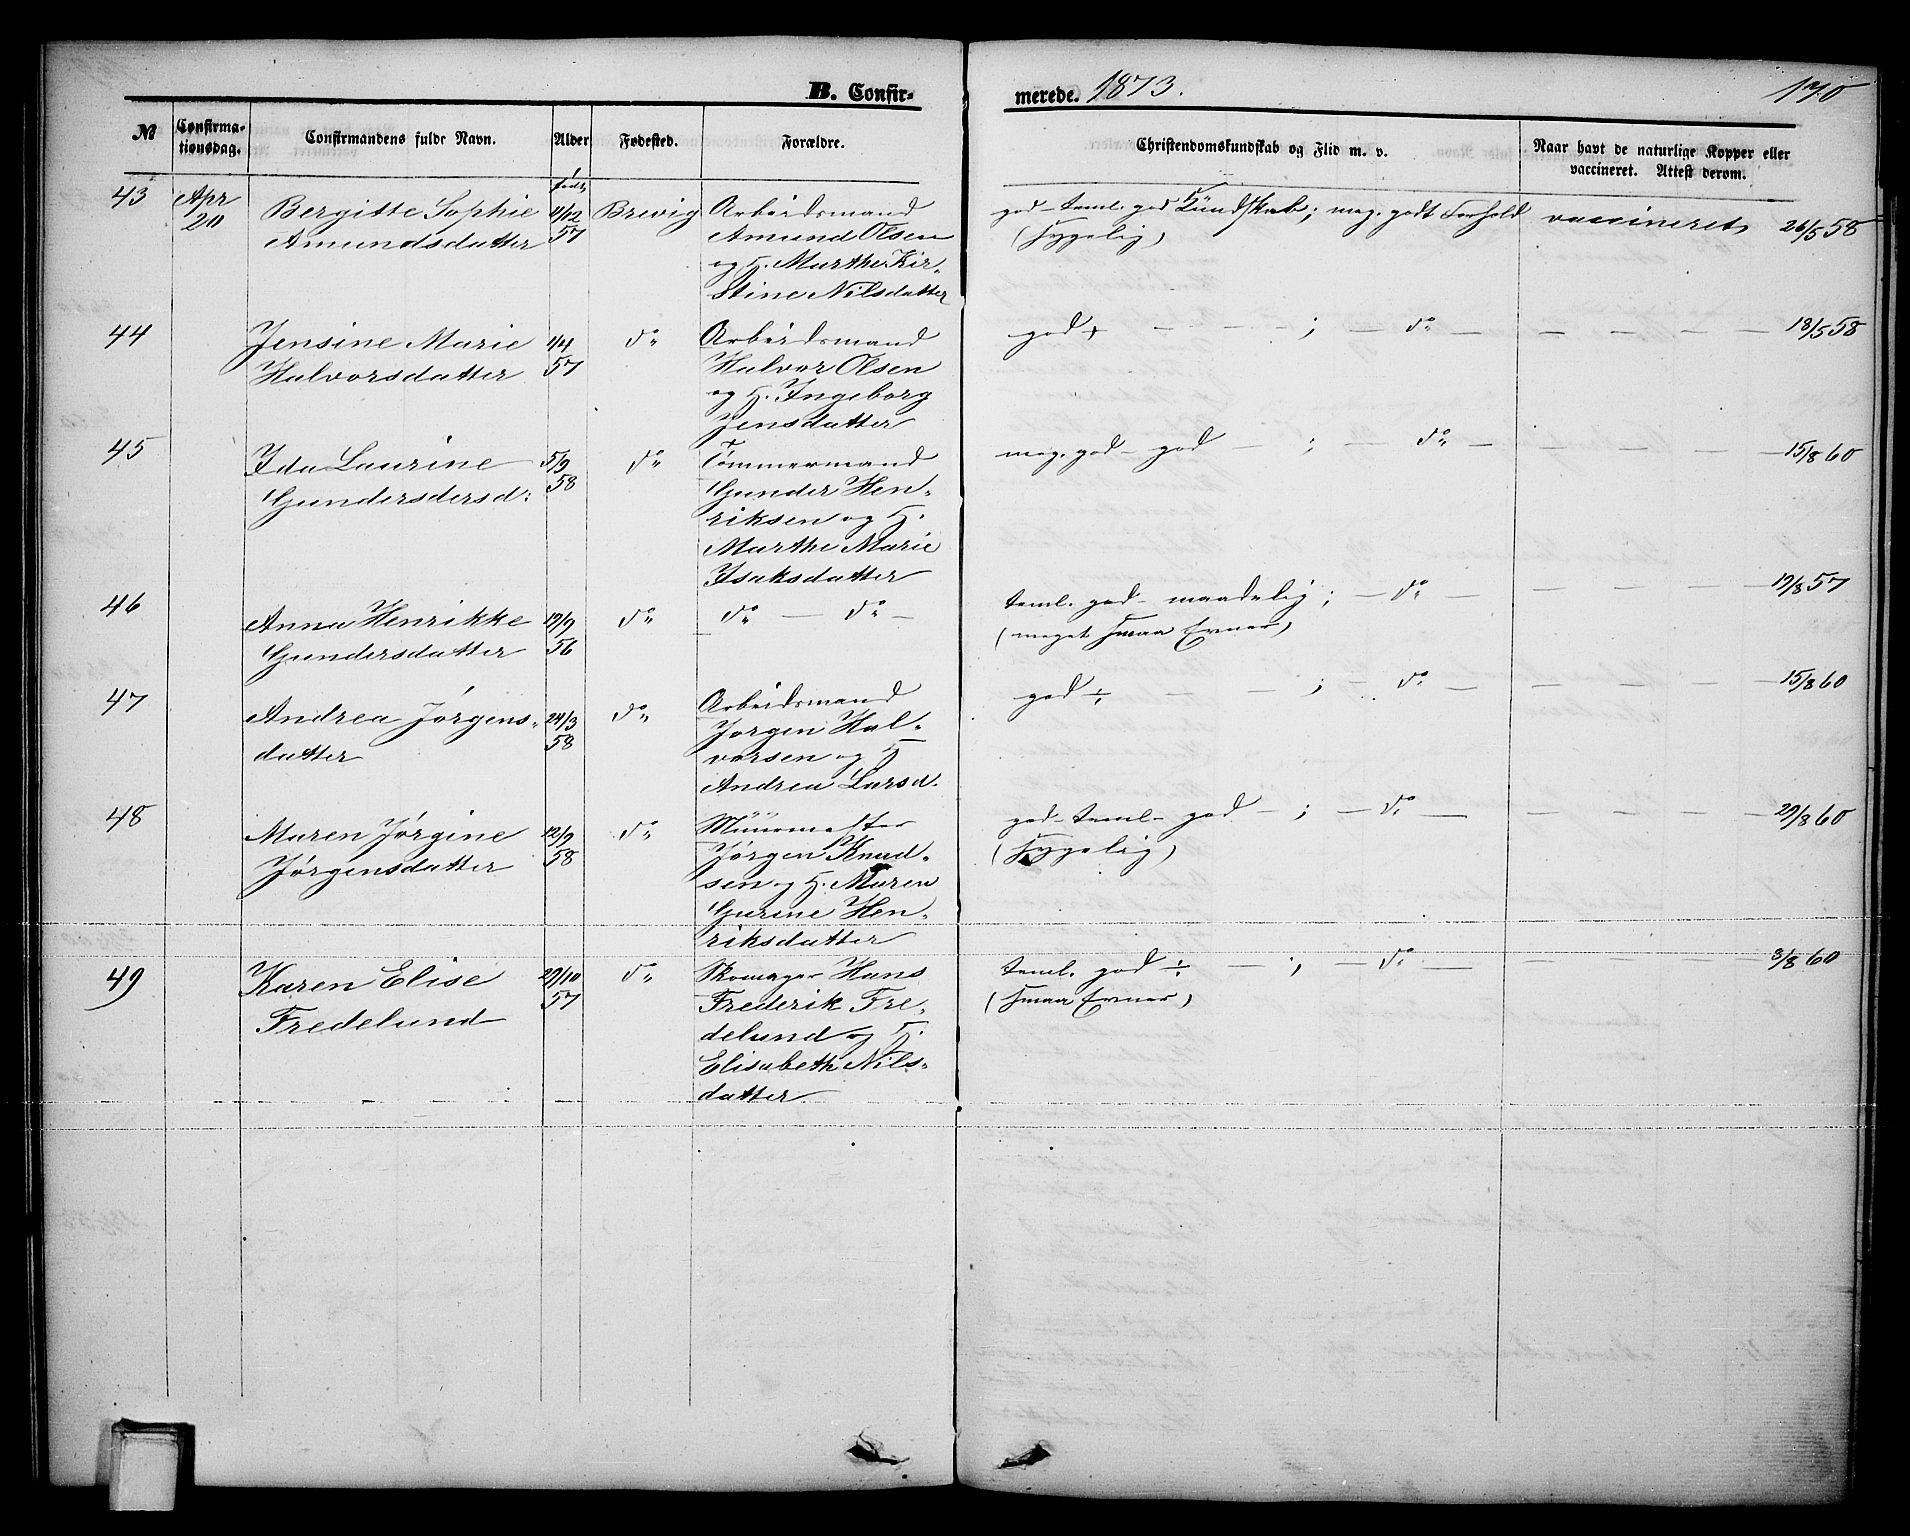 B. Confir-
merede. 1873.
170
№
Confirma-
tionsdag.
Confirmandens fulde Navn.
Alder
Fødested.
Forældre.
Christendomskundskab og Flid m. v.
Naar havt de naturlige Kopper eller
vaccineret. Attest derom.
43
Apr
20
Bergitte Sophie
Amundsdatter
født
11/12
57
Brevig
Arbeidsmand
Amund Olsen
og H. Marthe Kir-
stine Nilsdatter
god - teml. god Kundskab; meg. godt Forhold
(sygelig)
vaccineret
26/5 58
44
Jensine Marie
Halvorsdatter
4/4
57
do
Arbeidsmand
Halvor Olsen
og H. Ingeborg
Jensdatter
god + — — — ; — do — — — — —
18/5 58
45
Ida Laurine
Gundersdersd:
5/9
58
do
Tømmermand
Gunder Hen-
riksen og H.
Marthe Marie
Isaksdatter
meg. god - god — ; — do — — — — —
15/8 60
46
Anna Henrikke
Gundersdatter
12/9
56
do
do — do —
teml. god - maadelig ; — do — — — — —
(meget smaa Evner)
19/8 57
47
Andrea Jørgens-
datter
24/3
58
do
Arbeidsmand
Jørgen Hal-
vorsen og H
Andrea Larsd.
god ÷ — — ; — do — — — — —
15/8 60
48
Maren Jørgine
Jørgensdatter
12/9
58
do
Muurmester
Jørgen Knud-
sen og H. Maren
Gurine Hen-
riksdatter
god - teml. god — ; — do — — — — —
(sygelig)
29/8 60
49
Karen Elise
Fredelund
29/10
57
do
Skomager Hans
Frederik Fre-
delund og H.
Elisabeth Nils-
datter
teml. god ÷ — ; — do — — — — —
(smaa Evner)
3/8 60